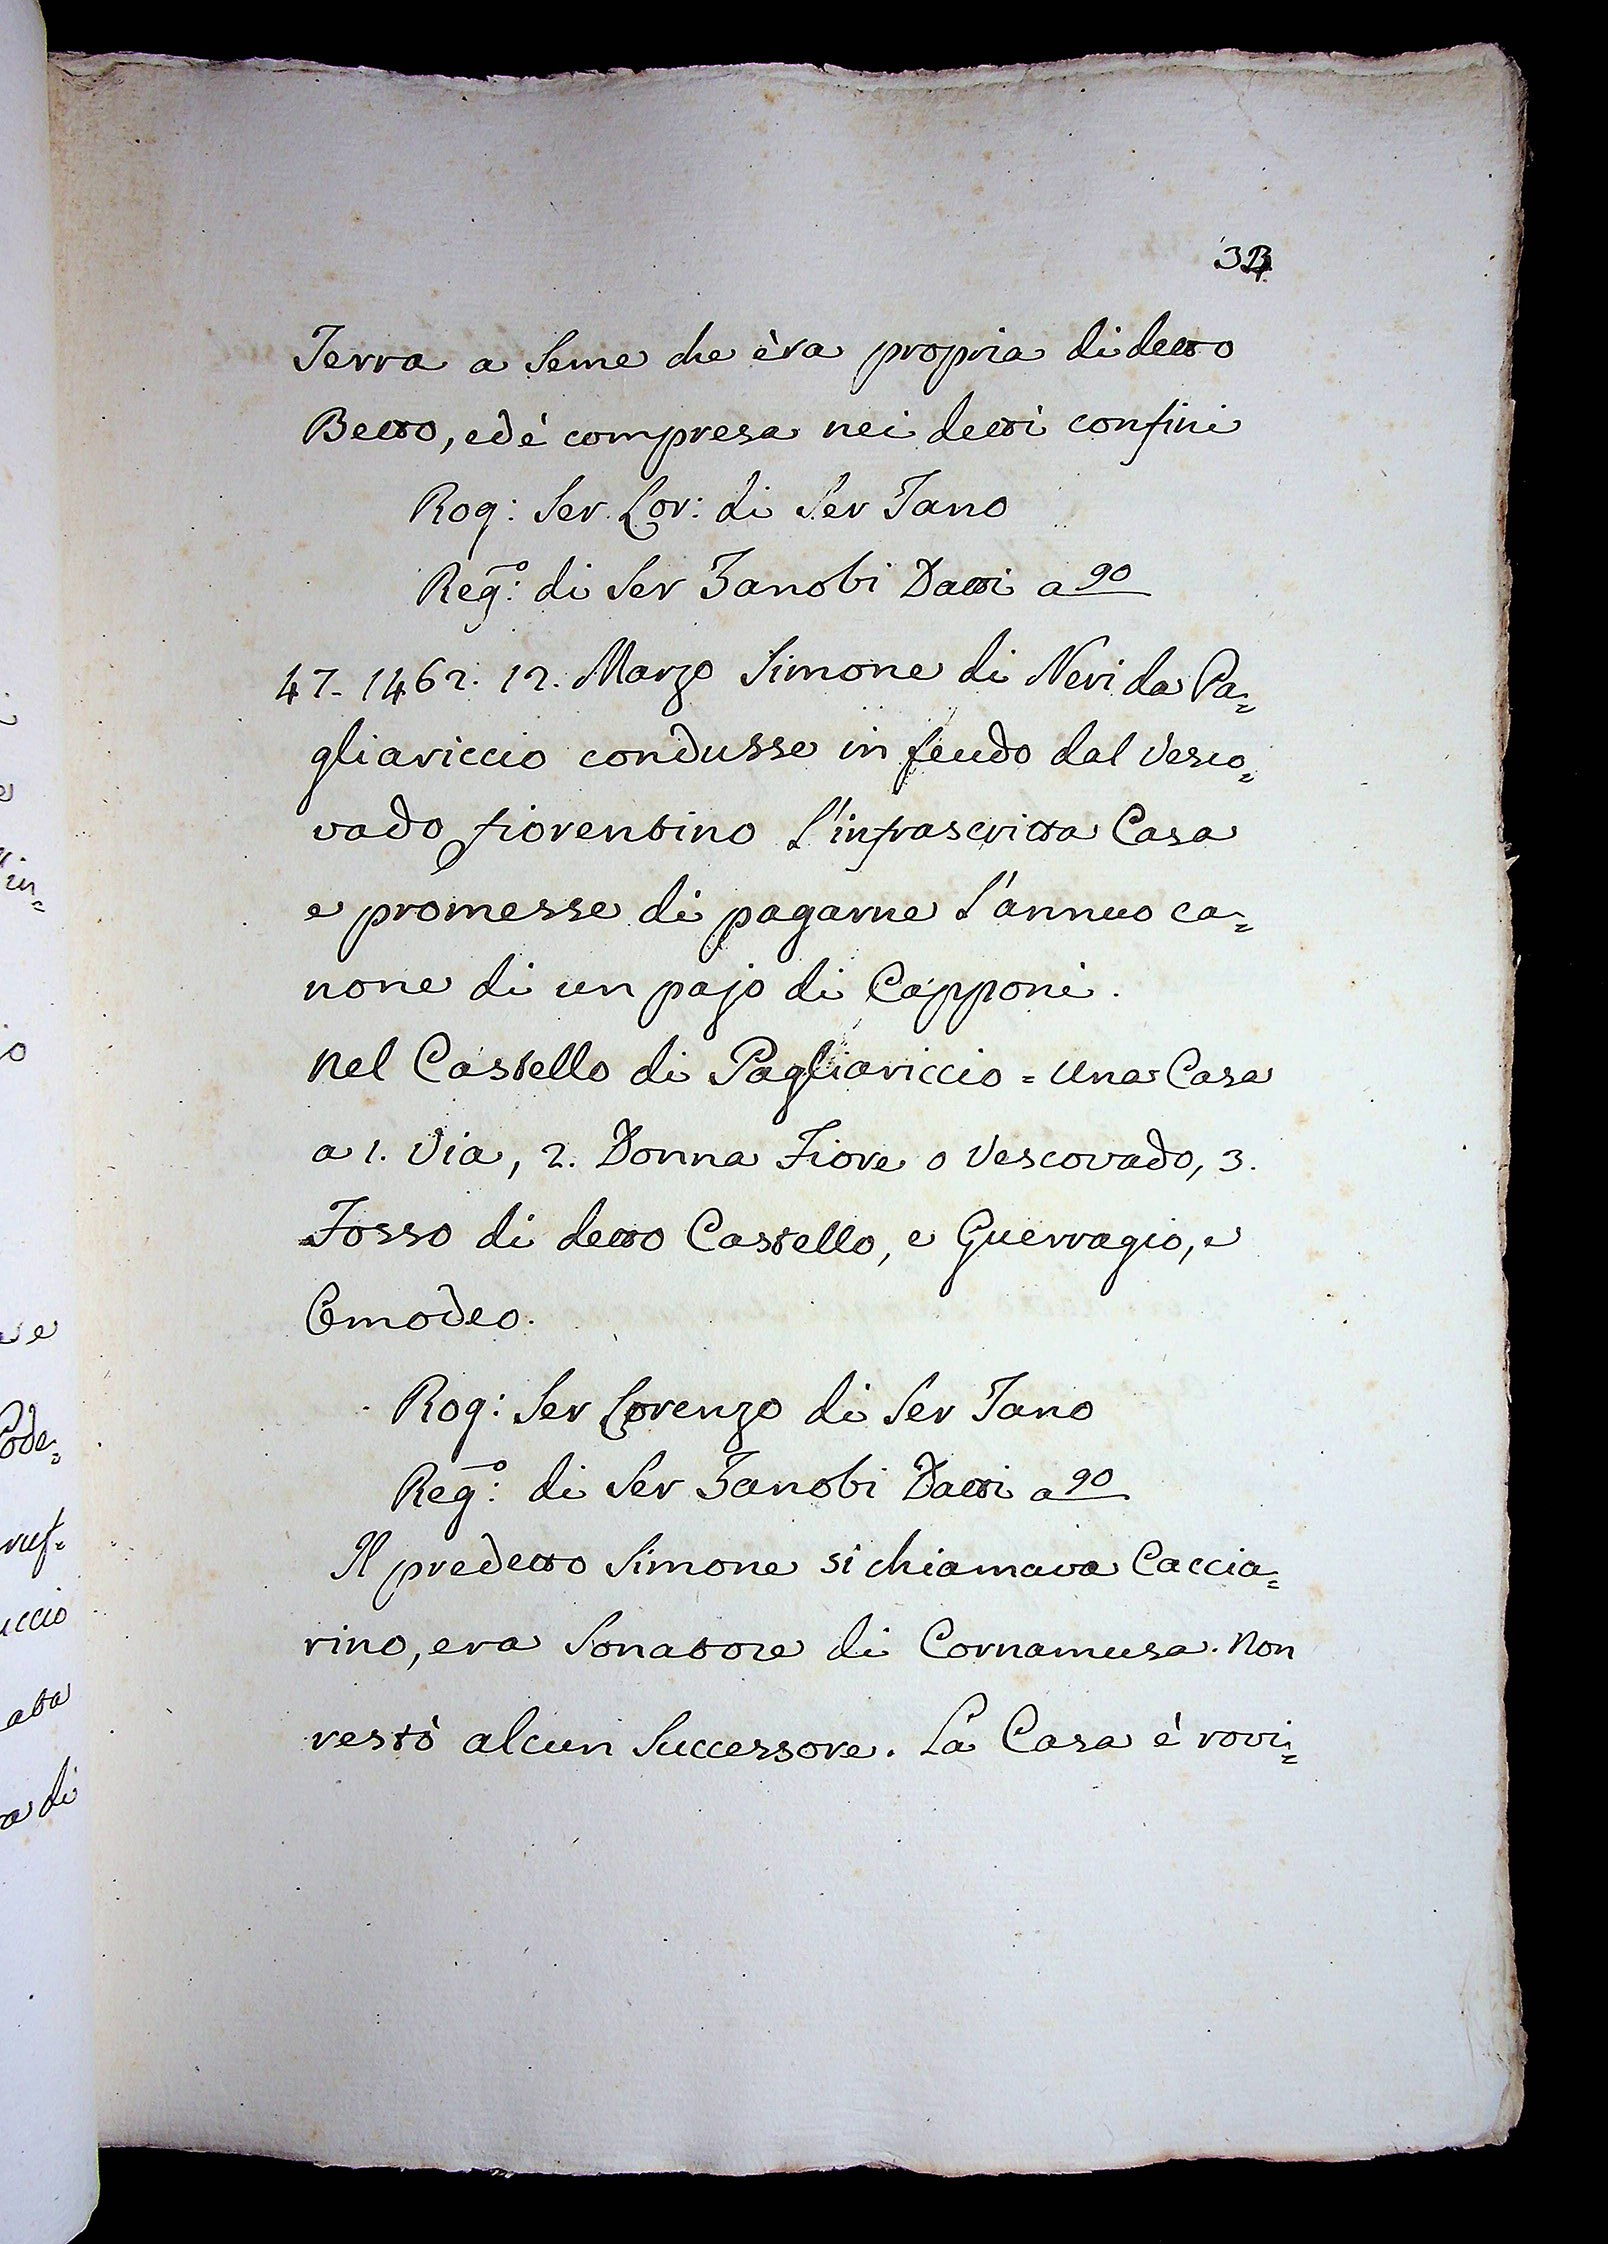 Terra a seme che èra propria di detto
Betto, ed è compresa nei detti confini
Rog: Ser Lor: di Ser Tano
Reg.º: di Ser Zanobi Datti a 90
47. 1462. 12. Marzo Simone di Neri da Pa=
gliariccio condusse in feudo dal Vesco=
vado fiorentino l'infrascritta Casa
e promesse di pagarne l'annuo ca=
none di un pajo di Capponi.
Nel Castello di Pagliariccio = Una Casa
a 1. Via, 2. Donna Fiore o Vescovado, 3.
Fosso di detto Castello, e Guerragio, e
Omodeo.
Rog: Ser Lorenzo di Ser Tano
Reg.º: di Ser Zanobi Datti a 90
Il predetto Simone si chiamava Caccia=
rino, era Sonatore di Cornamusa. Non
restò alcun Successore. La Casa è rovi=